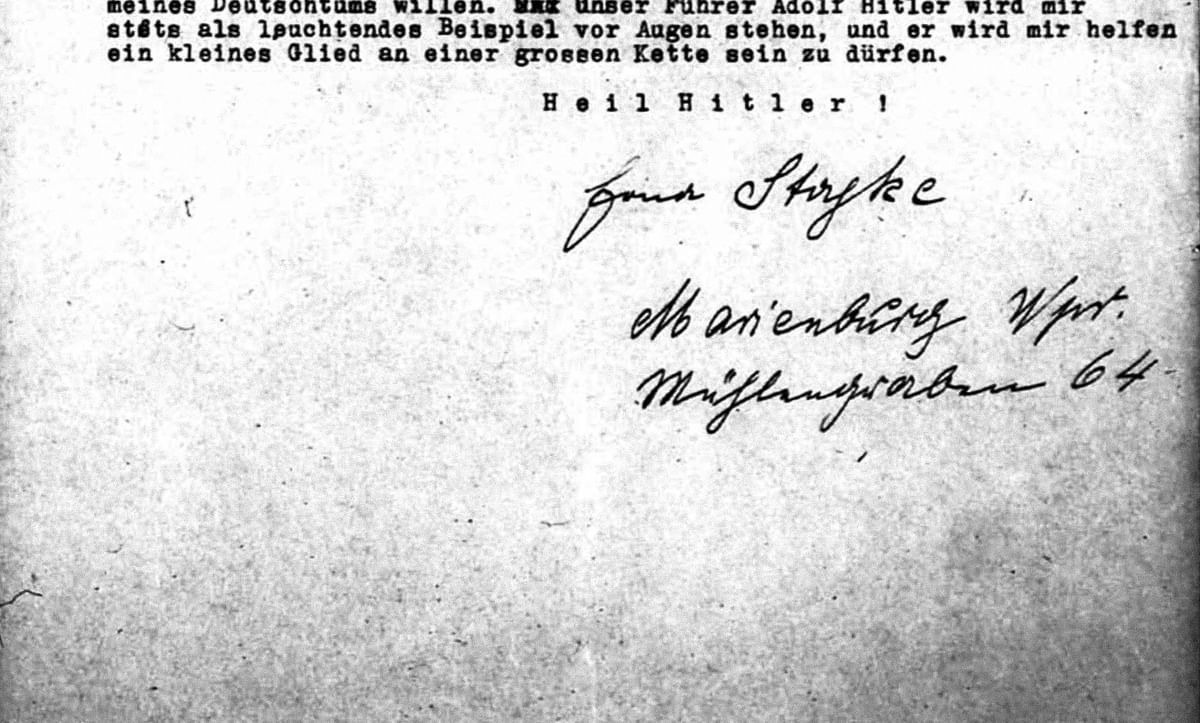 meines Deutschtums willen. unser Führer Adolf Hitler wird mir
stets als leuchtendes Beispiel vor Augen stehen, und er wird mir helfen
ein kleines Glied an einer grossen Kette sein zu dürfen.
Heil Hitler !
Marienburg Wpr.
Mühlengraben 64